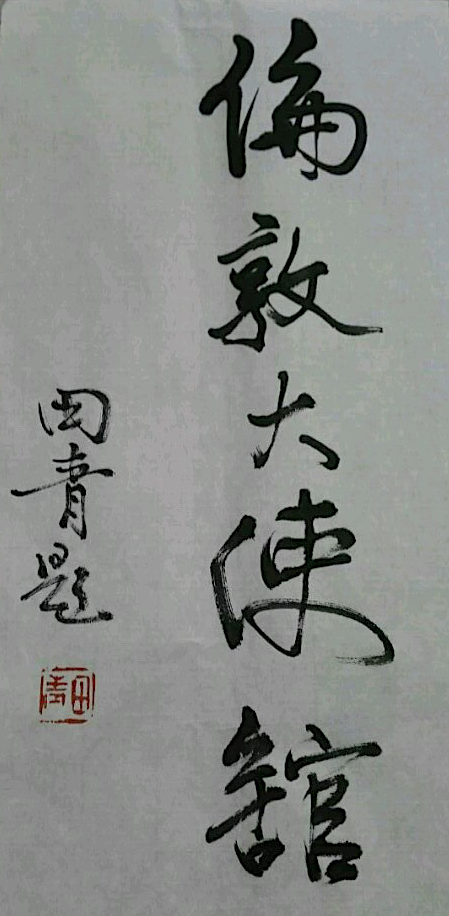 倫敦大使舘
田青题
田青